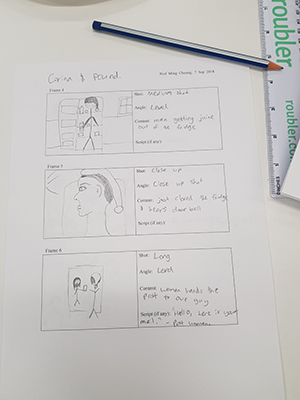 Corina & Pound.
Prof Ming Cheung, 7 Sep 2018
Frame 4
Shot: Medium shot
Angle: Level
Content: man getting juice
out of the fridge
Script (if any):
Frame 5
Shot: Close up
Angle: Close up shot
Content: just closed the fridge
& hears door bell
Script (if any):
Frame 6
Shot: Long
Angle: Level
Content: Woman hands the
post to our guy
Script (if any): "Hello, here is your
mail." - Post
roubler
roubler.com